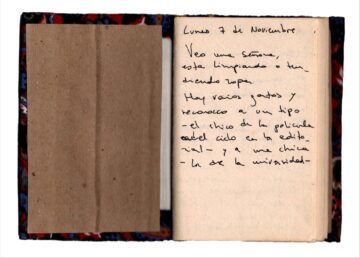 Lunes 7 de Noviembre
Veo una señora,
esta limpiando o ten
diendo ropa
Hay varios gatos y
reconozco a un tipo
-el chico de la película
del ciclo en la edito
rial- y a una chica
-la de la universidad-